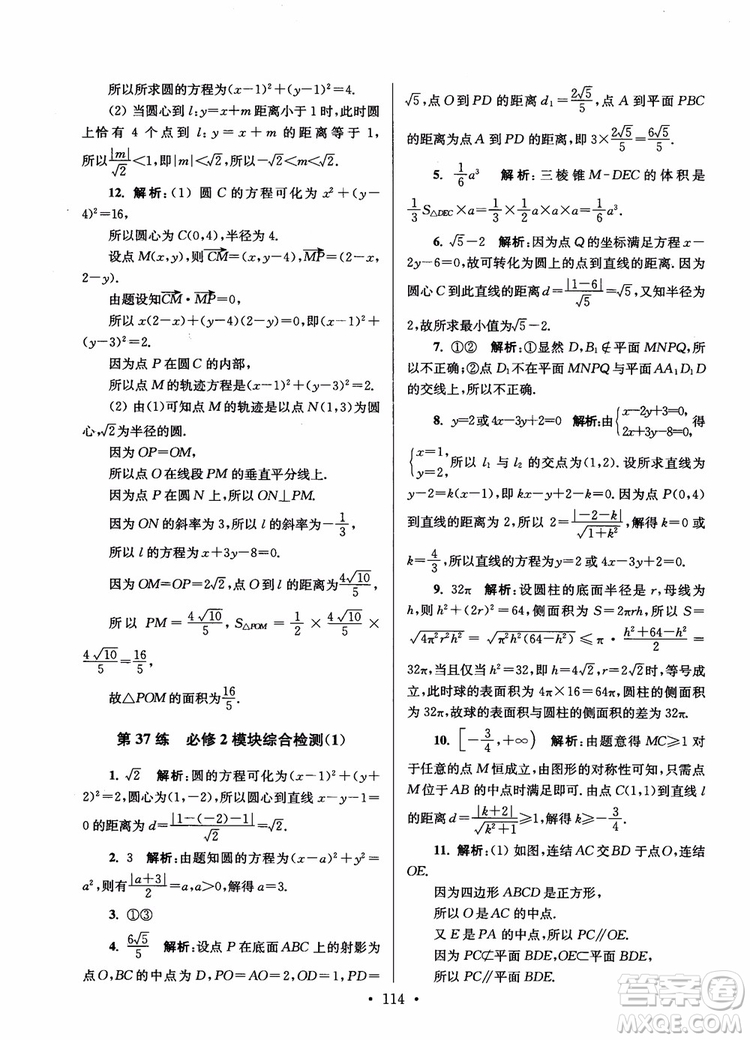 所以所求圆的方程为(x-1)²+(y-1)²=4.
(2) 当圆心到 l:y=x+m 距离小于 1 时,此时圆
上恰有 4 个点到 l: y = x + m 的距离等于 1,
所以|m|/√2<1,即|m|<√2,所以-√2<m<√2.
12. 解析:(1) 圆 C 的方程可化为 x²+(y-
4)²=16,
所以圆心为 C(0,4),半径为 4.
设点 M(x,y),则CM=(x,y-4),MP=(2-x,
2-y).
由题设知CM·MP=0,
所以 x(2-x)+(y-4)(2-y)=0,即(x-1)²+
(y-3)²=2.
因为点 P 在圆 C 的内部,
所以 M 的轨迹方程为(x-1)²+(y-3)²=2.
(2) 由(1)可知点 M 的轨迹是以点 N(1,3)为圆
心,√2为半径的圆.
因为 OP=OM,
所以点 O 在线段 PM 的垂直平分线上.
因为点 P 在圆 N 上,所以 ON⊥PM.
因为 ON 的斜率为 3,所以 l 的斜率为-1/3,
所以 l 的方程为 x+3y-8=0.
因为 OM=OP=2√2,点 O 到 l 的距离为4√10/5,
所以 PM = 4√10/5, S△POM = 1/2 × 4√10/5 ×
4√10/5=16/5,
故△POM 的面积为16/5.
第 37 练 必修 2 模块综合检测(1)
1. √2 解析:圆的方程可化为(x-1)²+(y+
2)²=2,圆心为(1,-2),所以圆心到直线 x-y=1
的距离为 d=|1-(-2)-1|/√2=√2.
2. 3 解析:由题知圆的方程为(x-a)²+y²=
a²,所以|a+3|/2=a,a>0,解得 a=3.
3. ①③
4. 6√5/5 解析:设点 P 在底面 ABC 上的射影为
点 O,BC 的中点为 D,PO=AO=2,OD=1,PD=
√5,点 O 到 PD 的距离 d₁=2√5/5,点 A 到平面 PBC
的距离为点 A 到 PD 的距离,即 3×2√5/5=6√5/5.
5. 1/6a³ 解析:三棱锥 M-DEC 的体积是
1/3S△DEC×a=1/3×1/2×a×a×a=1/6a³.
6. √5-2 解析:因为点 Q 的坐标满足方程 x-
2y-6=0,故可转化为圆上的点到直线的距离.因为
圆心 C 到此直线的距离 d=|1-6|/√5=√5,又知半径为
2,故所求最小值为√5-2.
7. ①② 解析:①显然 D,B₁∉平面 MNPQ,
所以不正确;②点 D₁不在平面 MNPQ 与平面 AA₁D₁D
的交线上,所以不正确.
8. y=2或4x-3y+2=0 解析:由{x-2y+3=0, 2x+3y-8=0,得
{x=1, y=2,所以 l₁ 与 l₂ 的交点为(1,2).设所求直线为
y-2=k(x-1),即 kx-y+2-k=0. 因为 P(0,4)
到直线的距离为 2,所以 2=|-2-k|/√(1+k²),解得 k=0 或
k=4/3,所以直线方程为 y=2 或 4x-3y+2=0.
9. 32π 解析:设圆柱的底面半径是 r,母线为
h,则 h²+(2r)²=64,侧面积为 S=2πrh,所以 S=
√(4π²r²h²) = √(π²h²(64-h²)) ≤ π · (h²+64-h²)/2
=32π,当且仅当 h²=32,h=4√2,r=2√2时,等号成
立,此时球的表面积为 4π×16=64π,圆柱的侧面积
为 32π,故球的表面积与圆柱的侧面积的差为 32π.
10. [-3/4,+∞) 解析:根据题意得 MC≥1对
于任意的点 M 恒成立,由图形的对称性可知,只需点
M位于 AB 的中点时满足即可. 由点 C(1,1)到直线 l
的距离 d=|k+2|/√(k²+1)≥1,解得 k≥-3/4.
11. 解析:(1) 如图,连结 AC交BD 于点 O,连结
OE.
因为四边形 ABCD 是正方形,
所以 O 是 AC 的中点.
又 E 是 PA 的中点,所以 PC∥OE.
因为 PC⊄平面 BDE,OE⊂平面 BDE,
所以 PC∥平面 BDE.
· 114 ·
答案圈
MXQE.COM